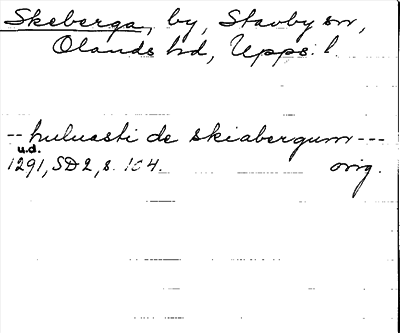 Skeberga, by, Stavby sn,
Olands hd, Upps. l.
-- huluasti de skiabergum ---
u.d.
1291, SD 2, s. 104. orig.